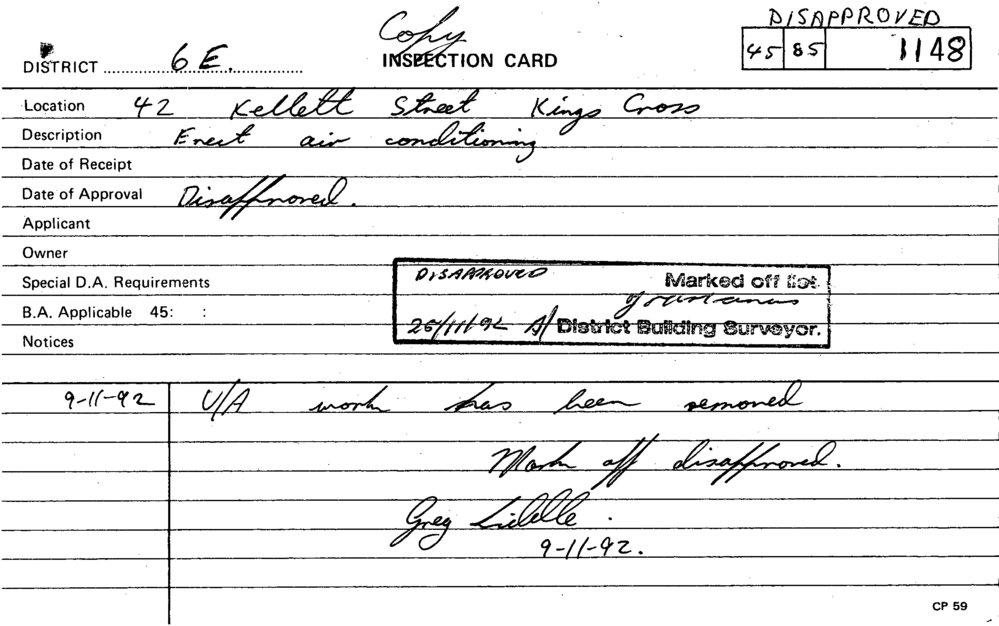 Copy
DISAPPROVED
DISTRICT 6E.
INSPECTION CARD
45 85 1148
Location 42 Kellett Street Kings Cross
Description Erect air conditioning
Date of Receipt
Date of Approval Disapproved.
Applicant
Owner
Special D.A. Requirements
DISAPPROVED Marked off list
B.A. Applicable 45: :
25/11/92 A/ District Building Surveyor.
Notices
9-11-92 U/A work has been removed
Mark off disapproved.
Greg
9-11-92.
CP 59